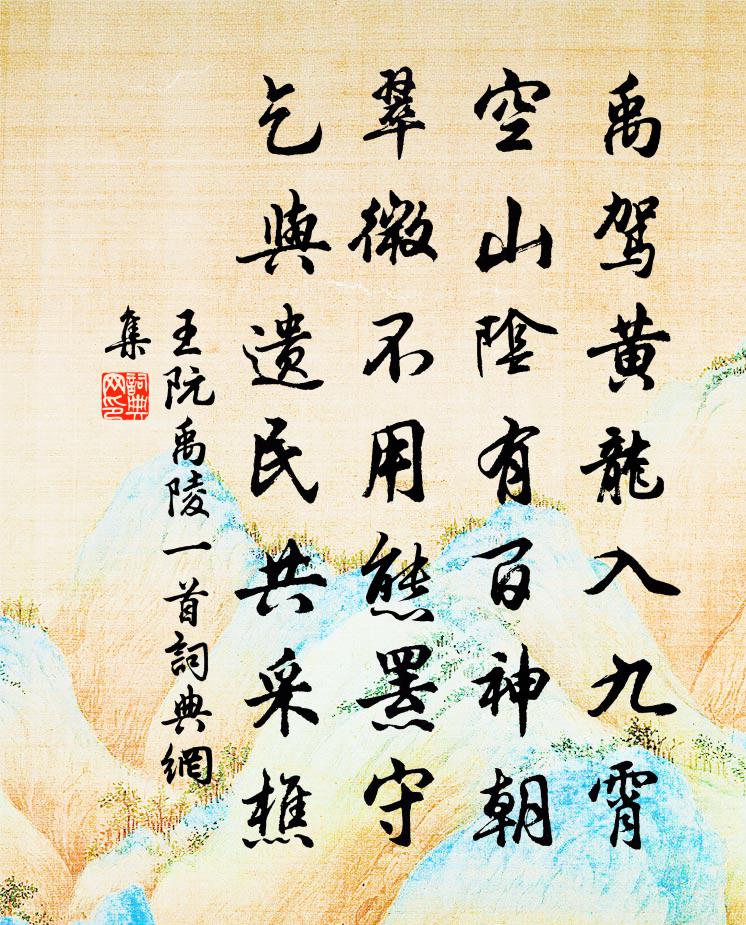 禹駕黄龍入九霄
空山陰有百神朝
翠微不用熊羆守
乞與遺民共采樵
王阮禹陵一首詞典網
集
詞典
网印